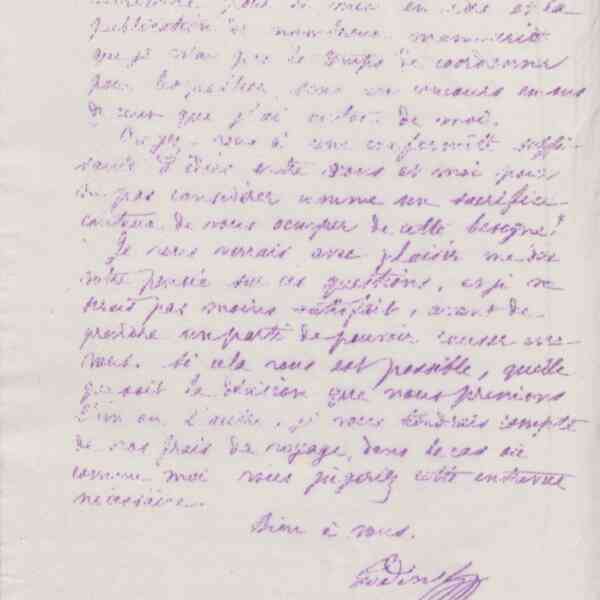 pour la mise en
publication de nombreux manuscrits
que je n'ai pas le temps de coordonner
pour les publier, sans un concours en sus
de ceux que j'ai autour de moi.
Croyez-vous à une conformité suffi-
sante d'idées entre vous et moi pour
ne pas considérer comme un sacrifice
continu de vous occuper de cette besogne ?
Je vous verrais avec plaisir me dire
votre pensée sur ces questions, et je ne
serais pas moins satisfait, avant de
prendre un parti de pouvoir causer avec
vous. Si cela vous est possible, quelle
que soit la décision que nous prenions
l'un ou l'autre, je vous tiendrais compte
de vos frais de voyage, dans le cas où
comme moi vous jugeriez cette entrevue
nécessaire.
Bien à vous.
Godin